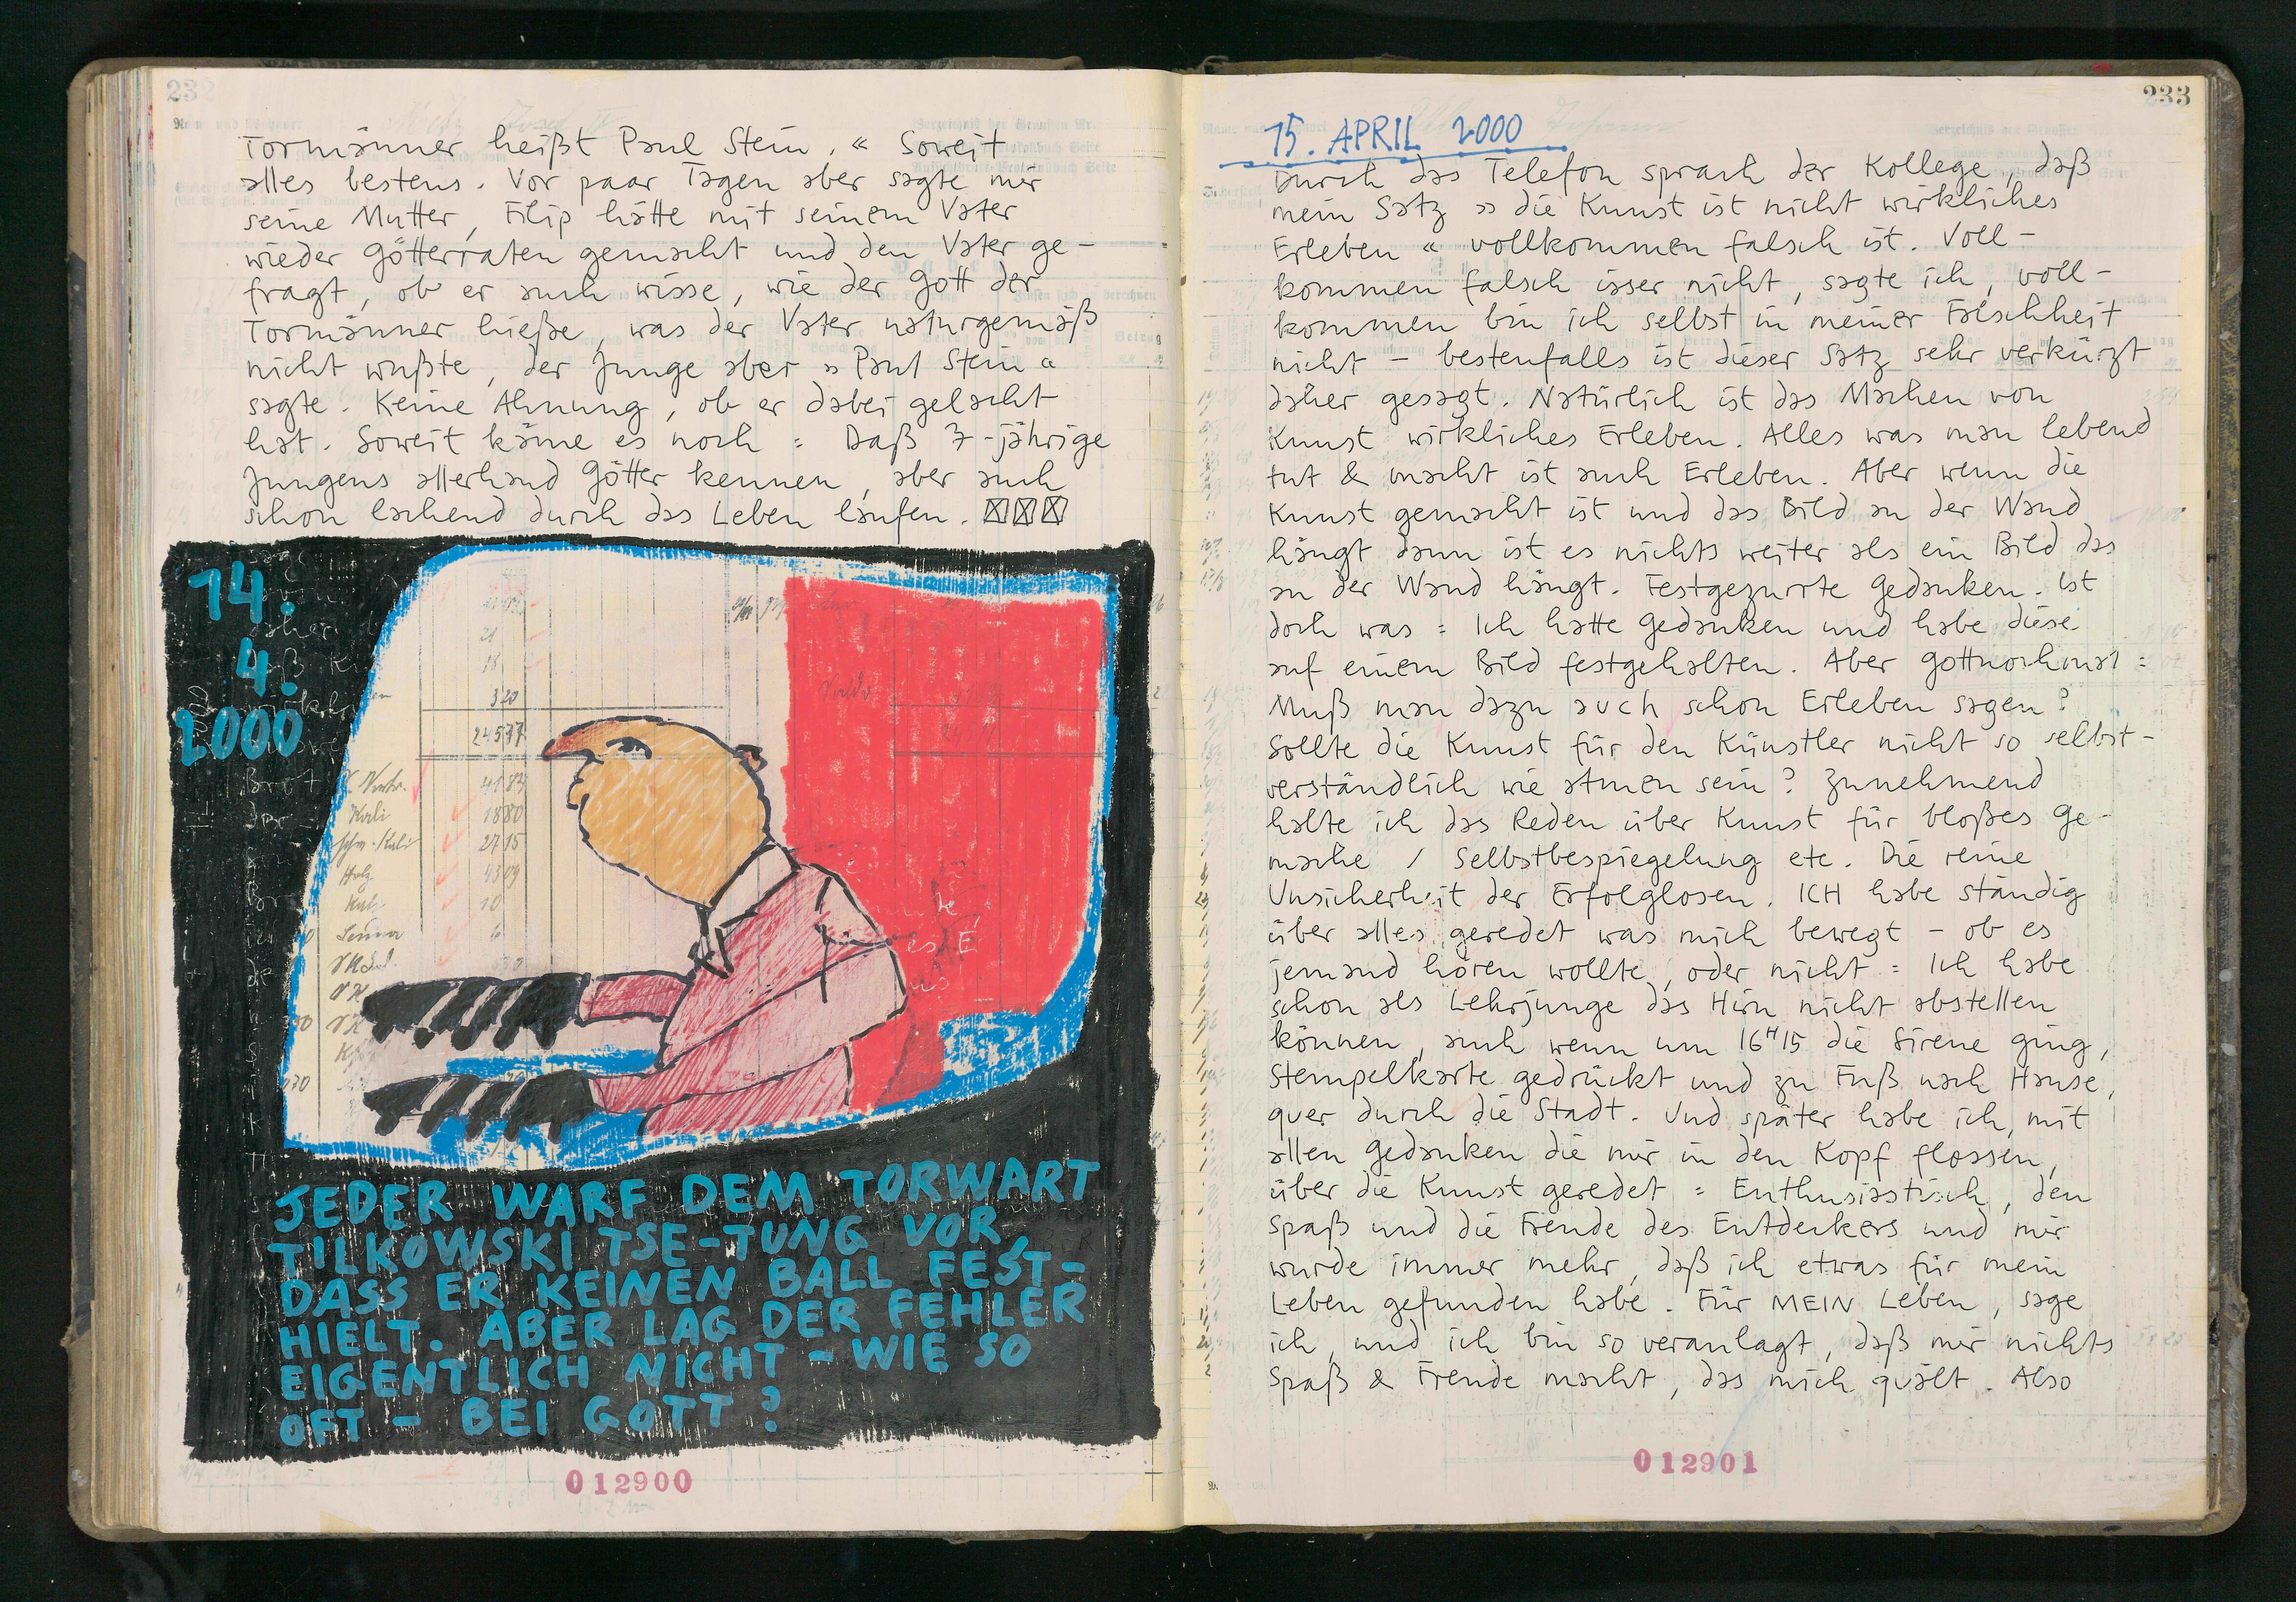 232
Tormänner heißt Paul Stein. « Soweit
alles bestens. Vor paar Tagen aber sagte mir
seine Mutter, Filip hätte mit seinem Vater
wieder Götterraten gemacht und den Vater ge-
fragt, ob er auch wisse, wie der Gott der
Tormänner hieße, was der Vater naturgemäß
nicht wußte, der Junge aber » Paul Stein «
sagte. Keine Ahnung, ob er dabei gelacht
hat. Soweit käme es noch : Daß 7-jährige
Jungens allerhand Götter kennen, aber auch
schon lachend durch das Leben laufen.
14.
4.
2000
320
24577
4183
Kali
1880
2715
Holz
4309
10
JEDER WARF DEM TORWART
TILKOWSKI TSE-TUNG VOR,
DASS ER KEINEN BALL FEST-
HIELT. ABER LAG DER FEHLER
EIGENTLICH NICHT - WIE SO
OFT - BEI GOTT ?
012900
233
15. APRIL 2000
Durch das Telefon sprach der Kollege, daß
mein Satz » die Kunst ist nicht wirkliches
Erleben « vollkommen falsch ist. Voll-
kommen falsch isser nicht, sagte ich, voll-
kommen bin ich selbst in meiner Falschheit
nicht - bestenfalls ist dieser Satz sehr verkürzt
daher gesagt. Natürlich ist das Machen von
Kunst wirkliches Erleben. Alles was man lebend
tut & macht ist auch Erleben. Aber wenn die
Kunst gemacht ist und das Bild an der Wand
hängt dann ist es nichts weiter als ein Bild das
an der Wand hängt. Festgezurrte Gedanken. Ist
doch was : Ich hatte Gedanken und habe diese
auf einem Bild festgehalten. Aber Gottnochmal :
Muß man dazu auch schon Erleben sagen?
Sollte die Kunst für den Künstler nicht so selbst-
verständlich wie atmen sein? Zunehmend
halte ich das Reden über Kunst für bloßes Ge-
mache / Selbstbespiegelung etc. Die reine
Unsicherheit der Erfolglosen. ICH habe ständig
über alles geredet was mich bewegt - ob es
jemand hören wollte, oder nicht : Ich habe
schon als Lehrjunge das Hirn nicht abstellen
können, auch wenn um 16H15 die Sirene ging,
Stempelkarte gedrückt und zu Fuß nach Hause,
quer durch die Stadt. Und später habe ich, mit
allen Gedanken die mir in den Kopf flossen,
über die Kunst geredet : Enthusiastisch, den
Spaß und die Freude des Entdeckers und mir
wurde immer mehr, daß ich etwas für mein
Leben gefunden habe. Für MEIN Leben, sage
ich, und ich bin so veranlagt, daß mir nichts
Spaß & Freude macht, das mich quält. Also
012901